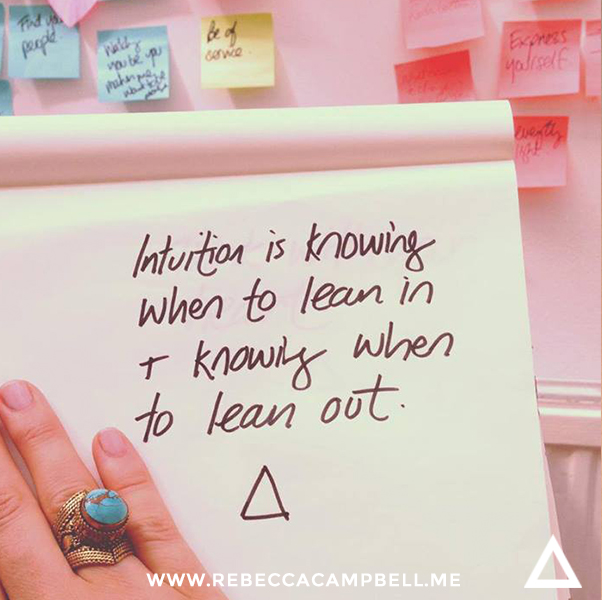 Find your
people
be
you
Be of
service.
Express
yourself
Intuition is knowing
when to lean in
+ knowing when
to lean out.
WWW.REBECCACAMPBELL.ME